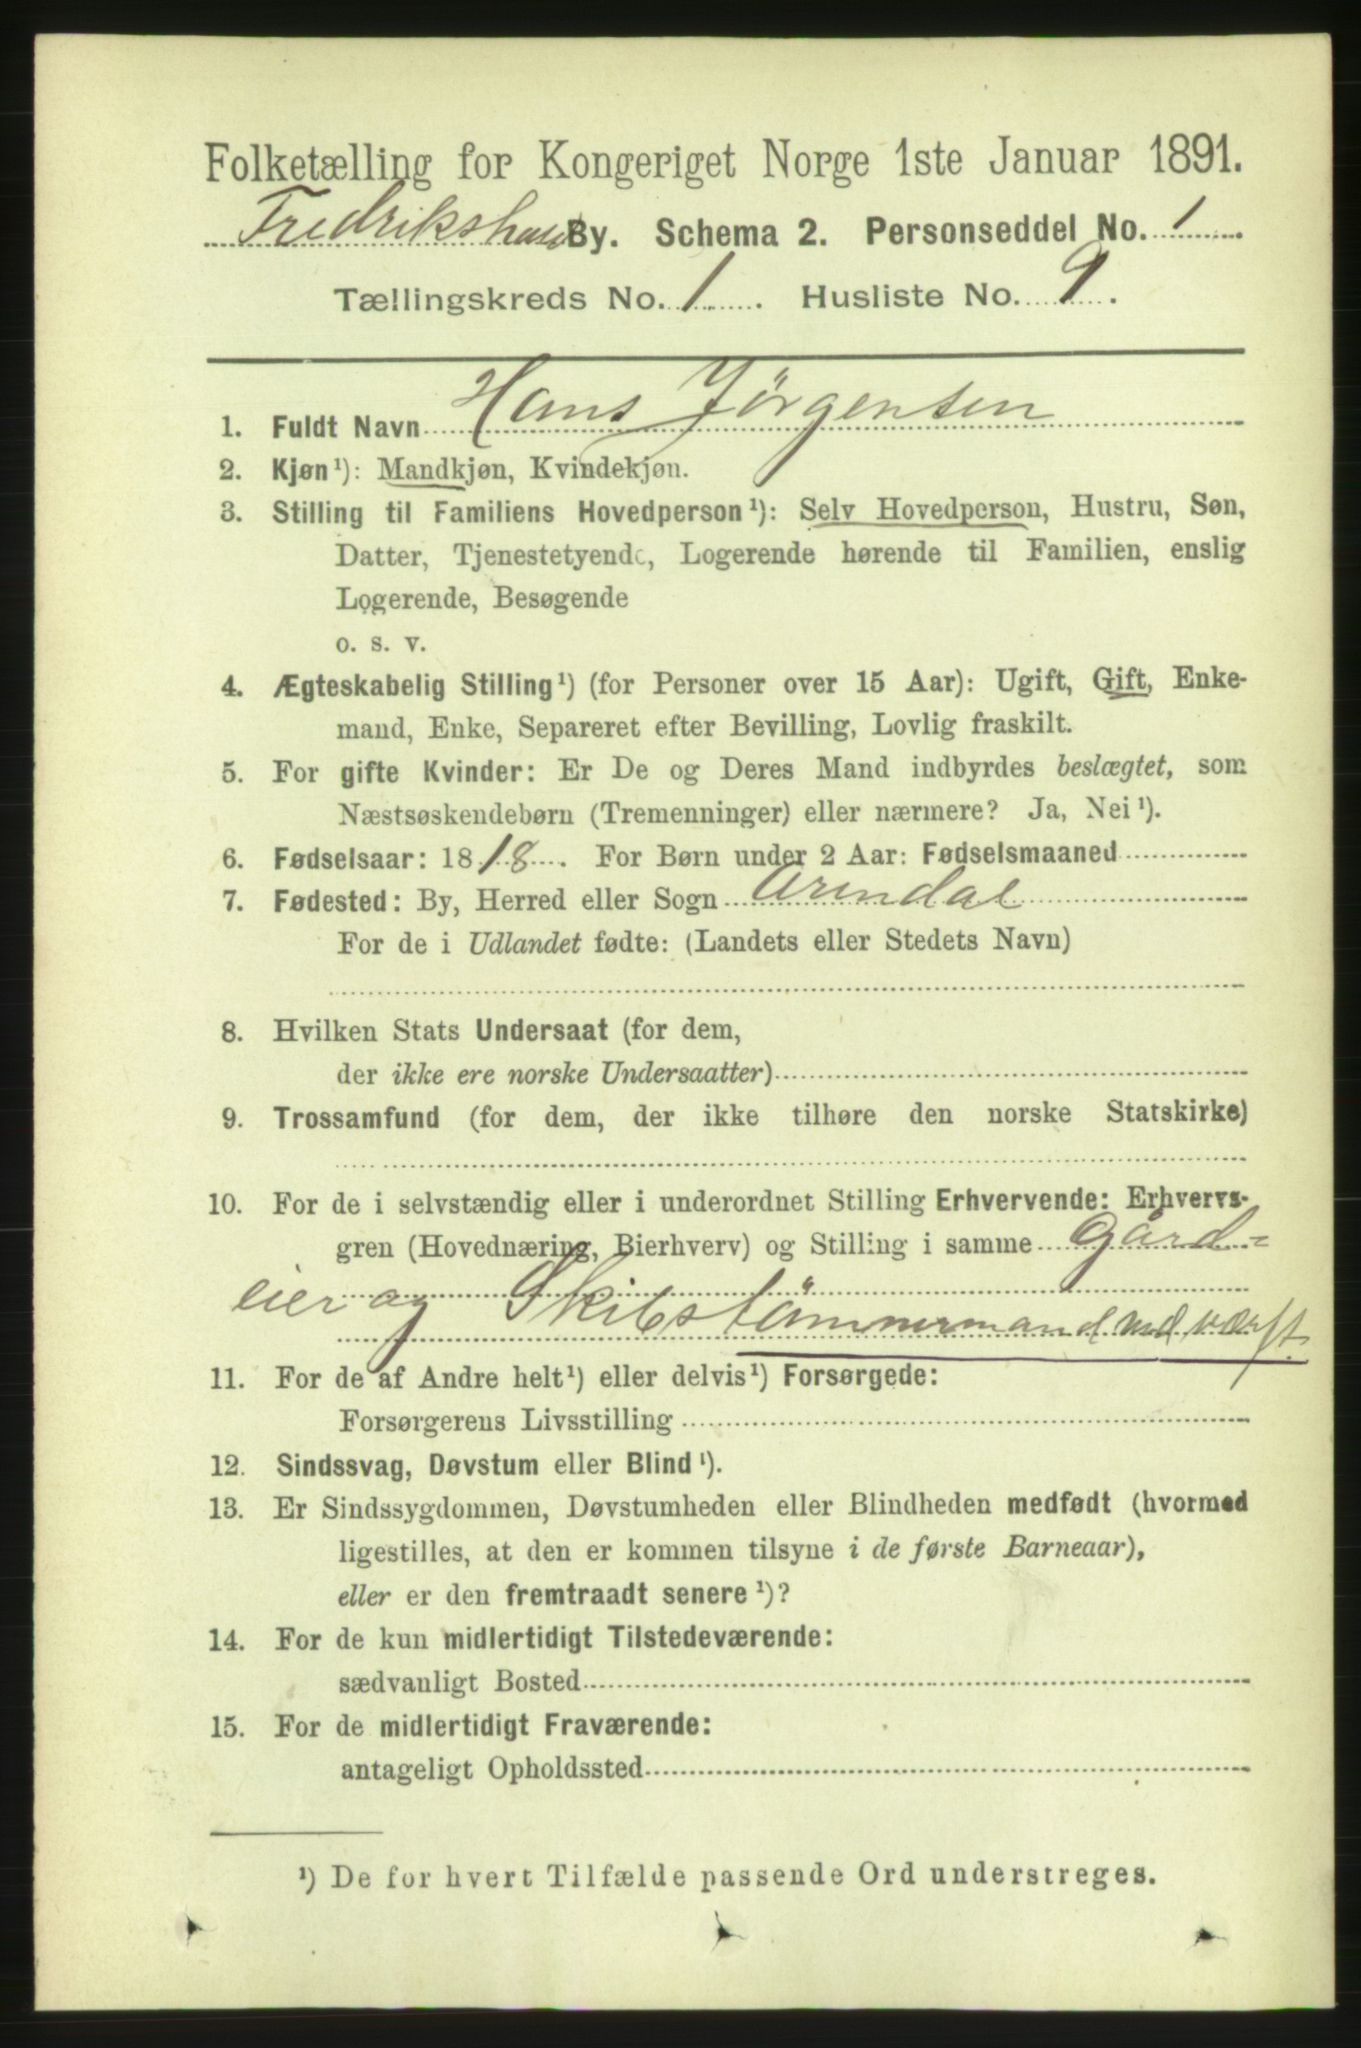 Folketælling for Kongeriget Norge 1ste Januar 1891.
Fredrikshald By. Schema 2. Personseddel No. 1
Tællingskreds No. 1. Husliste No. 9.
1. Fuldt Navn Hans Jörgensen
2. Kjøn¹): Mandkjøn, Kvindekjøn.
3. Stilling til Familiens Hovedperson¹): Selv Hovedperson, Hustru, Søn,
Datter, Tjenestetyende, Logerende hørende til Familien, enslig
Logerende, Besøgende
o. s. v.
4. Ægteskabelig Stilling¹) (for Personer over 15 Aar): Ugift, Gift, Enke-
mand, Enke, Separeret efter Bevilling, Lovlig fraskilt.
5. For gifte Kvinder: Er De og Deres Mand indbyrdes beslægtet, som
Næstsøskendebørn (Tremenninger) eller nærmere? Ja, Nei¹).
6. Fødselsaar: 1818. For Børn under 2 Aar: Fødselsmaaned
7. Fødested: By, Herred eller Sogn Arendal
For de i Udlandet fødte: (Landets eller Stedets Navn)
8. Hvilken Stats Undersaat (for dem,
der ikke ere norske Undersaatter)
9. Trossamfund (for dem, der ikke tilhøre den norske Statskirke)
10. For de i selvstændig eller i underordnet Stilling Erhvervende: Erhvervs-
gren (Hovednæring, Bierhverv) og Stilling i samme Gård=
eier og Skibstömmermand ved værft.
11. For de af Andre helt¹) eller delvis¹) Forsørgede:
Forsørgerens Livsstilling
12. Sindssvag, Døvstum eller Blind¹).
13. Er Sindssygdommen, Døvstumheden eller Blindheden medfødt (hvormed
ligestilles, at den er kommen tilsyne i de første Barneaar),
eller er den fremtraadt senere¹)?
14. For de kun midlertidigt Tilstedeværende:
sædvanligt Bosted
15. For de midlertidigt Fraværende:
antageligt Opholdssted
¹) De for hvert Tilfælde passende Ord understreges.